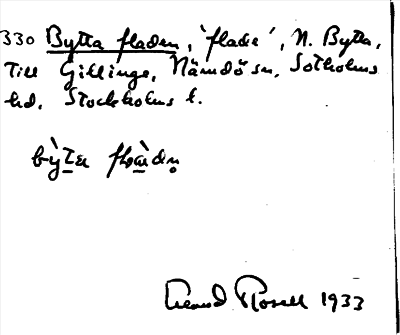 330 Bytta fladen, 'flade', N. Bytta,
Till Gillinge, Nämdö sn, Sotholms
hd. Stockholms l.
Erland Rosell 1933